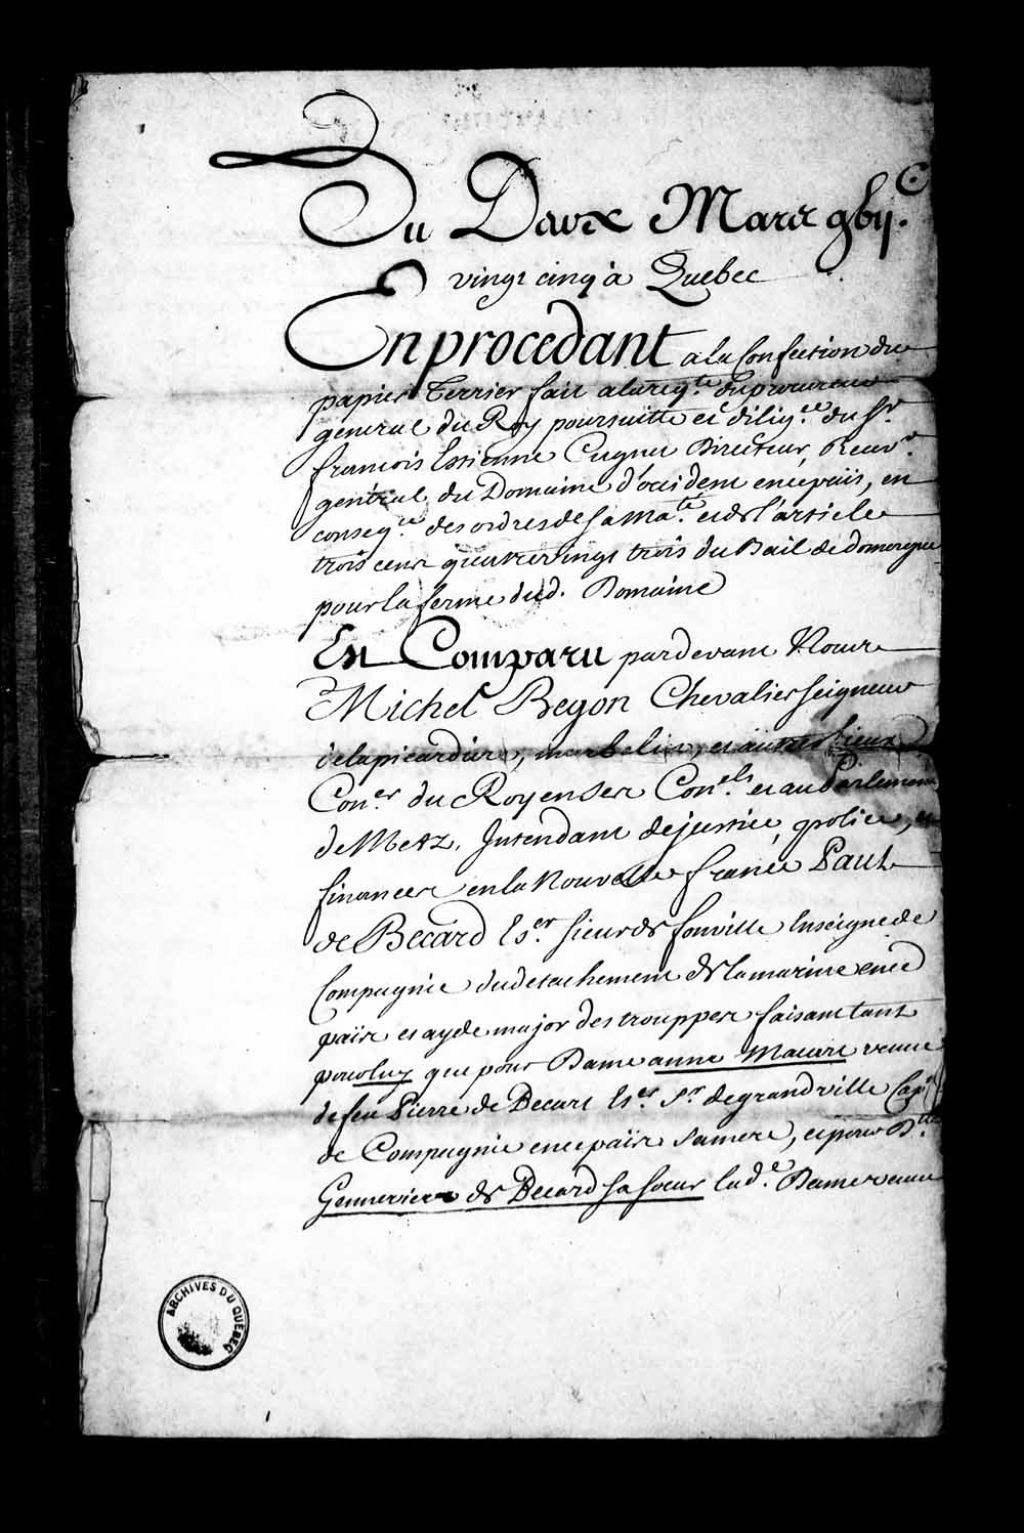 Du Deux Mars gbij.C
vingt cinq à Quebec
En procedant a la Confection du
papier Terrier fait a la req.te du procureur
general du Roy poursuitte et dilig.ce du Sr.
francois Estienne Cugnet Directeur, Recev.r
général du Domaine d'occident en ce païs, en
conseq.ce des ordres de Sa Ma.té et de l'article
trois cent quatre vingt trois du Bail de domergue
pour la ferme dud. Domaine
Est Comparu pardevant Nous
Michel Begon Chevalier seigneur
de la picardiere, murbelin, et autres lieux
Con.er du Roy en ses Con.ls et au Parlement
de Metz, Intendant de justice, police, et
finances en la Nouvelle france Paul
de Becard Es.er sieur de fonville Enseigne de
Compagnie du detachement de la marine en ce d
païs et ayde major des trouppes faisant tant
pour luy que pour Dame anne Macart veuve
de feu Pierre de Becart Es.er Sr. de grandville Cap.e
de Compagnie en ce païs sa mere, et pour D.lle
Gennevieve de Becard sa soeur lad.e Dame veuve
ARCHIVES DU QUÉBEC